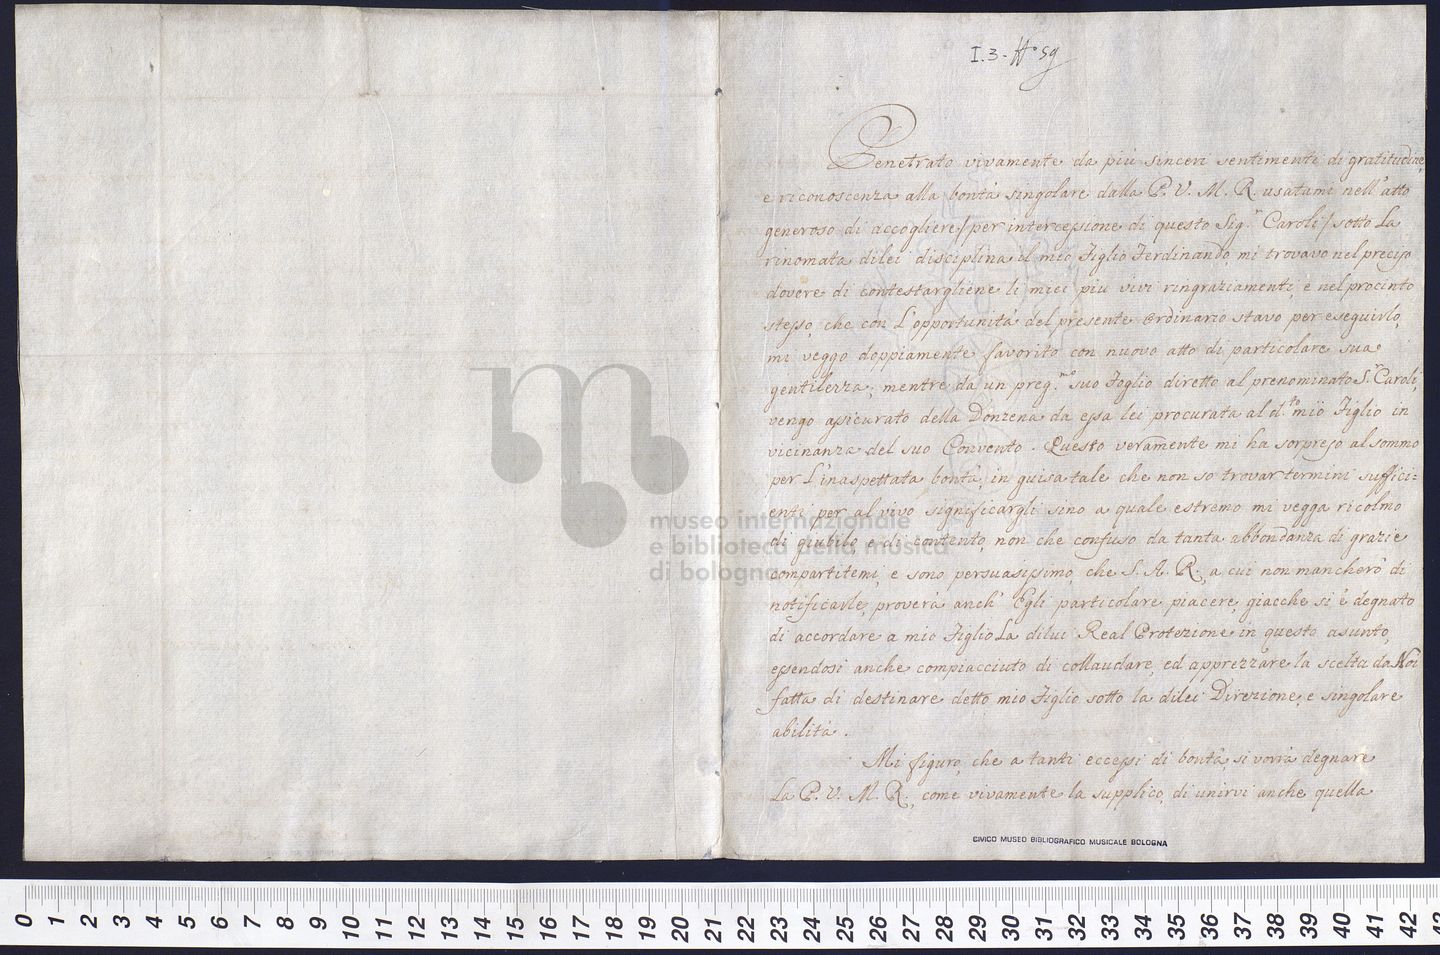 I.3. H° 59
Penetrato vivamente da più sinceri sentimenti di gratitudine,
e riconoscenza alla bontà singolare dalla P. V. M. R. usatami nell'atto
generoso di accogliere /per intercessione di questo Sig.r Caroli/ sotto La
rinomata dilei disciplina il mio Figlio Ferdinando, mi trovavo nel preciso
dovere di contestargliene li miei più vivi ringraziamenti, e nel procinto
stesso, che con L'opportunità del presente Ordinario stavo per eseguirlo,
mi veggo doppiamente favorito con nuovo atto di particolare sua
gentilezza; mentre da un preg.mo suo Foglio diretto al prenominato S.r Caroli,
vengo assicurato della Donzena da essa lei procurata al d.tto mio Figlio in
vicinanza del suo Convento. Questo veramente mi ha sorpreso al sommo
per L'inaspettata bontà, in guisa tale che non so trovar termini suffici=
enti per al vivo significargli sino a quale estremo mi vegga ricolmo
di giubilo, e di contento, non che confuso da tanta abbondanza di grazie
compartitemi, e sono persuasissimo, che S. A. R., a cui non mancherò di
notificarle, proverà anch' Egli particolare piacere, giacche si è degnato
di accordare a mio Figlio La dilui Real Protezione in questo asunto,
essendosi anche compiacciuto di collaudare, ed apprezzare la scelta da Noi
fatta di destinare detto mio Figlio sotto la dilei Direzione, e singolare
abilità.
Mi figuro, che a tanti eccessi di bontà, si vorrà degnare
La P. V. M. R., come vivamente la supplico, di unirvi anche quella
museo internazionale
e biblioteca della musica
di bologna
CIVICO MUSEO BIBLIOGRAFICO MUSICALE BOLOGNA
0 1 2 3 4 5 6 7 8 9 10 11 12 13 14 15 16 17 18 19 20 21 22 23 24 25 26 27 28 29 30 31 32 33 34 35 36 37 38 39 40 41 42 43